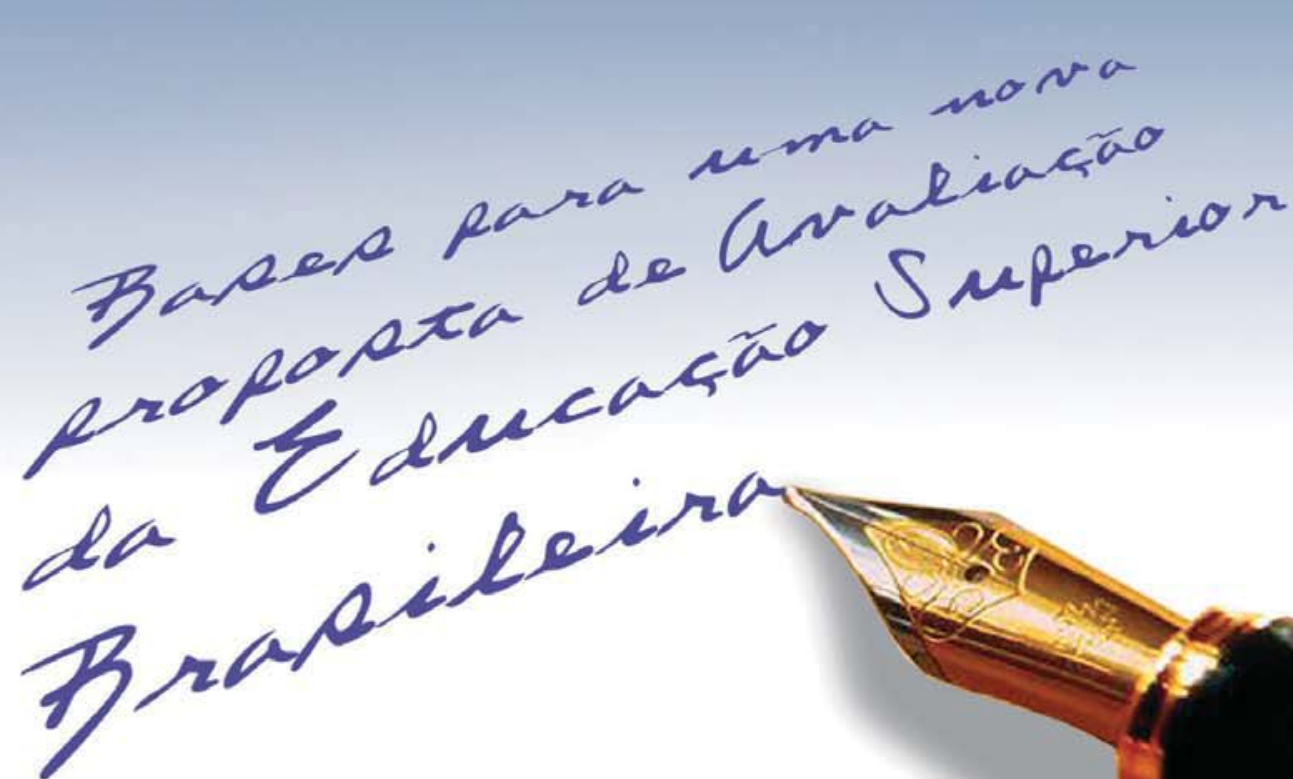 Bases para uma nova
proposta de Avaliação
da Educação Superior
Brasileira